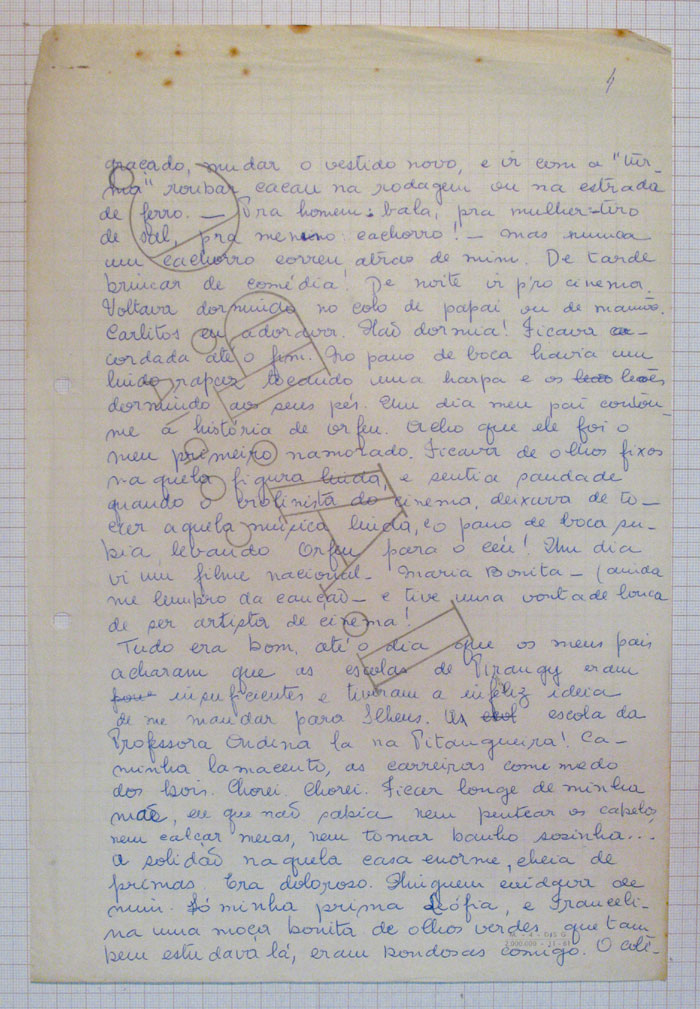 4
graçado, mudar o vestido novo, e ir com a "tur-
ma" roubar cacau na rodagem ou na estrada
de ferro. — Pra homem: bala, pra mulher-tiro
de sal, pra menino: cachorro! — mas nunca
um cachorro correu atras de mim. De tarde
brincar de comédia! De noite ir p'ro cinema.
Voltava dormindo no colo de papai ou de mamãe.
Carlitos eu adorava. Não dormia! Ficava a-
cordada até o fim. No pano de boca havia um
lindo rapaz tocando uma harpa e os leões
dormindo aos seus pés. Um dia meu pai contou-
me a história de Orfeu. Acho que ele foi o
meu primeiro namorado. Ficava de olhos fixos
naquela figura linda, e sentia saudade
quando o violinista do cinema, deixava de to-
car aquela música linda, e o pano de boca su-
bia, levando Orfeu para o céu! Um dia
vi um filme nacional - Maria Bonita - (ainda
me lembro da canção - e tive uma vontade louca
de ser artista de cinema!
Tudo era bom, até o dia que os meus pais
acharam que as escolas de Pirangy eram
insuficientes e tiveram a infeliz ideia
de me mandar para Ilheus. escola da
Professora Ondina la na Pitangueira! Ca-
minha lamacento, as carreiras com medo
dos bois. Chorei. Chorei. Ficar longe de minha
mãe, eu que não sabia nem pentear os cabelos,
nem calçar meias, nem tomar banho sozinha...
A solidão naquela casa enorme, cheia de
primas. Era doloroso. Ninguem cuidava de
mim. Só minha prima Sófia, e Franceli-
na uma moça bonita de olhos verdes, que tam-
bem estudava lá, eram bondosas comigo. O colé-
2.000.000 - 21 - 61